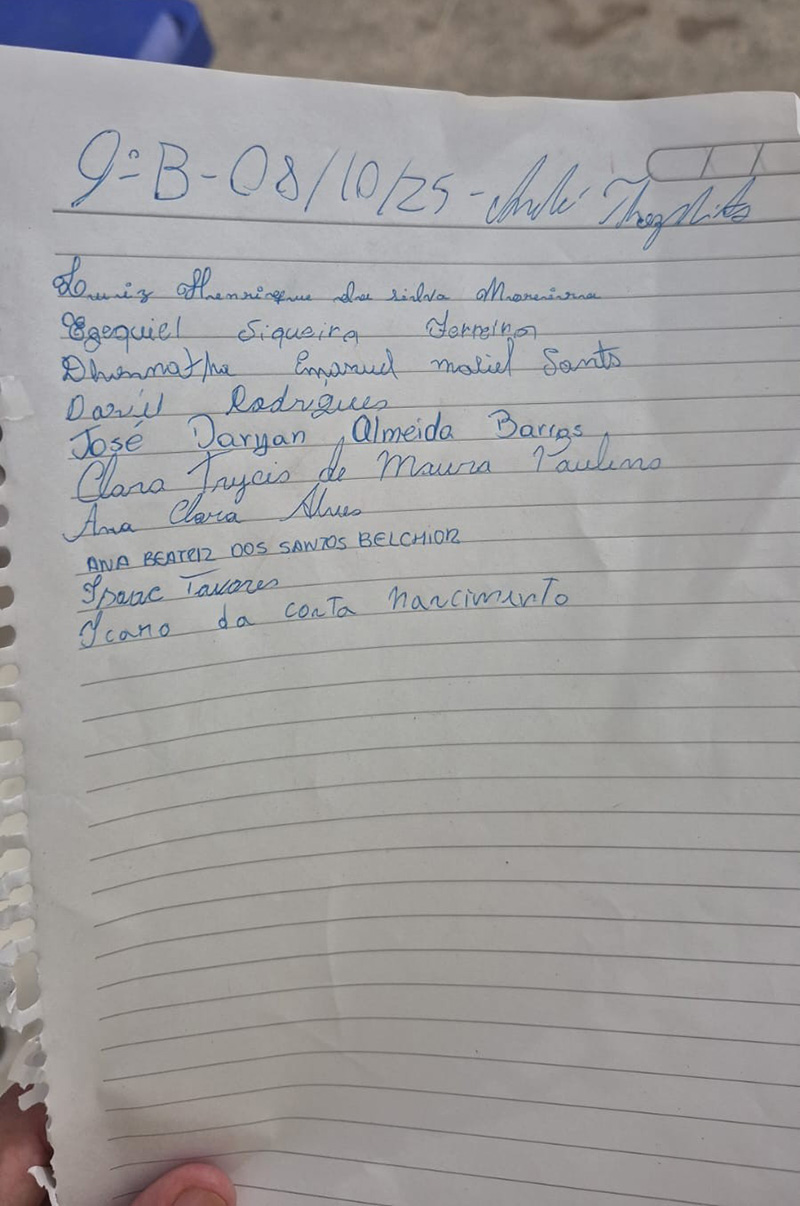 9º B - 08/10/25 - André
Luiz Henrique da silva Moreira
Ezequiel Siqueira Ferreira
Emanuel maciel Santos
Rodrigues
José Daryan Almeida Barros
Clara de Moura Paulino
Ana Clara Alves
ANA BEATRIZ DOS SANTOS BELCHIOR
Isaac Tavares
da costa nascimento